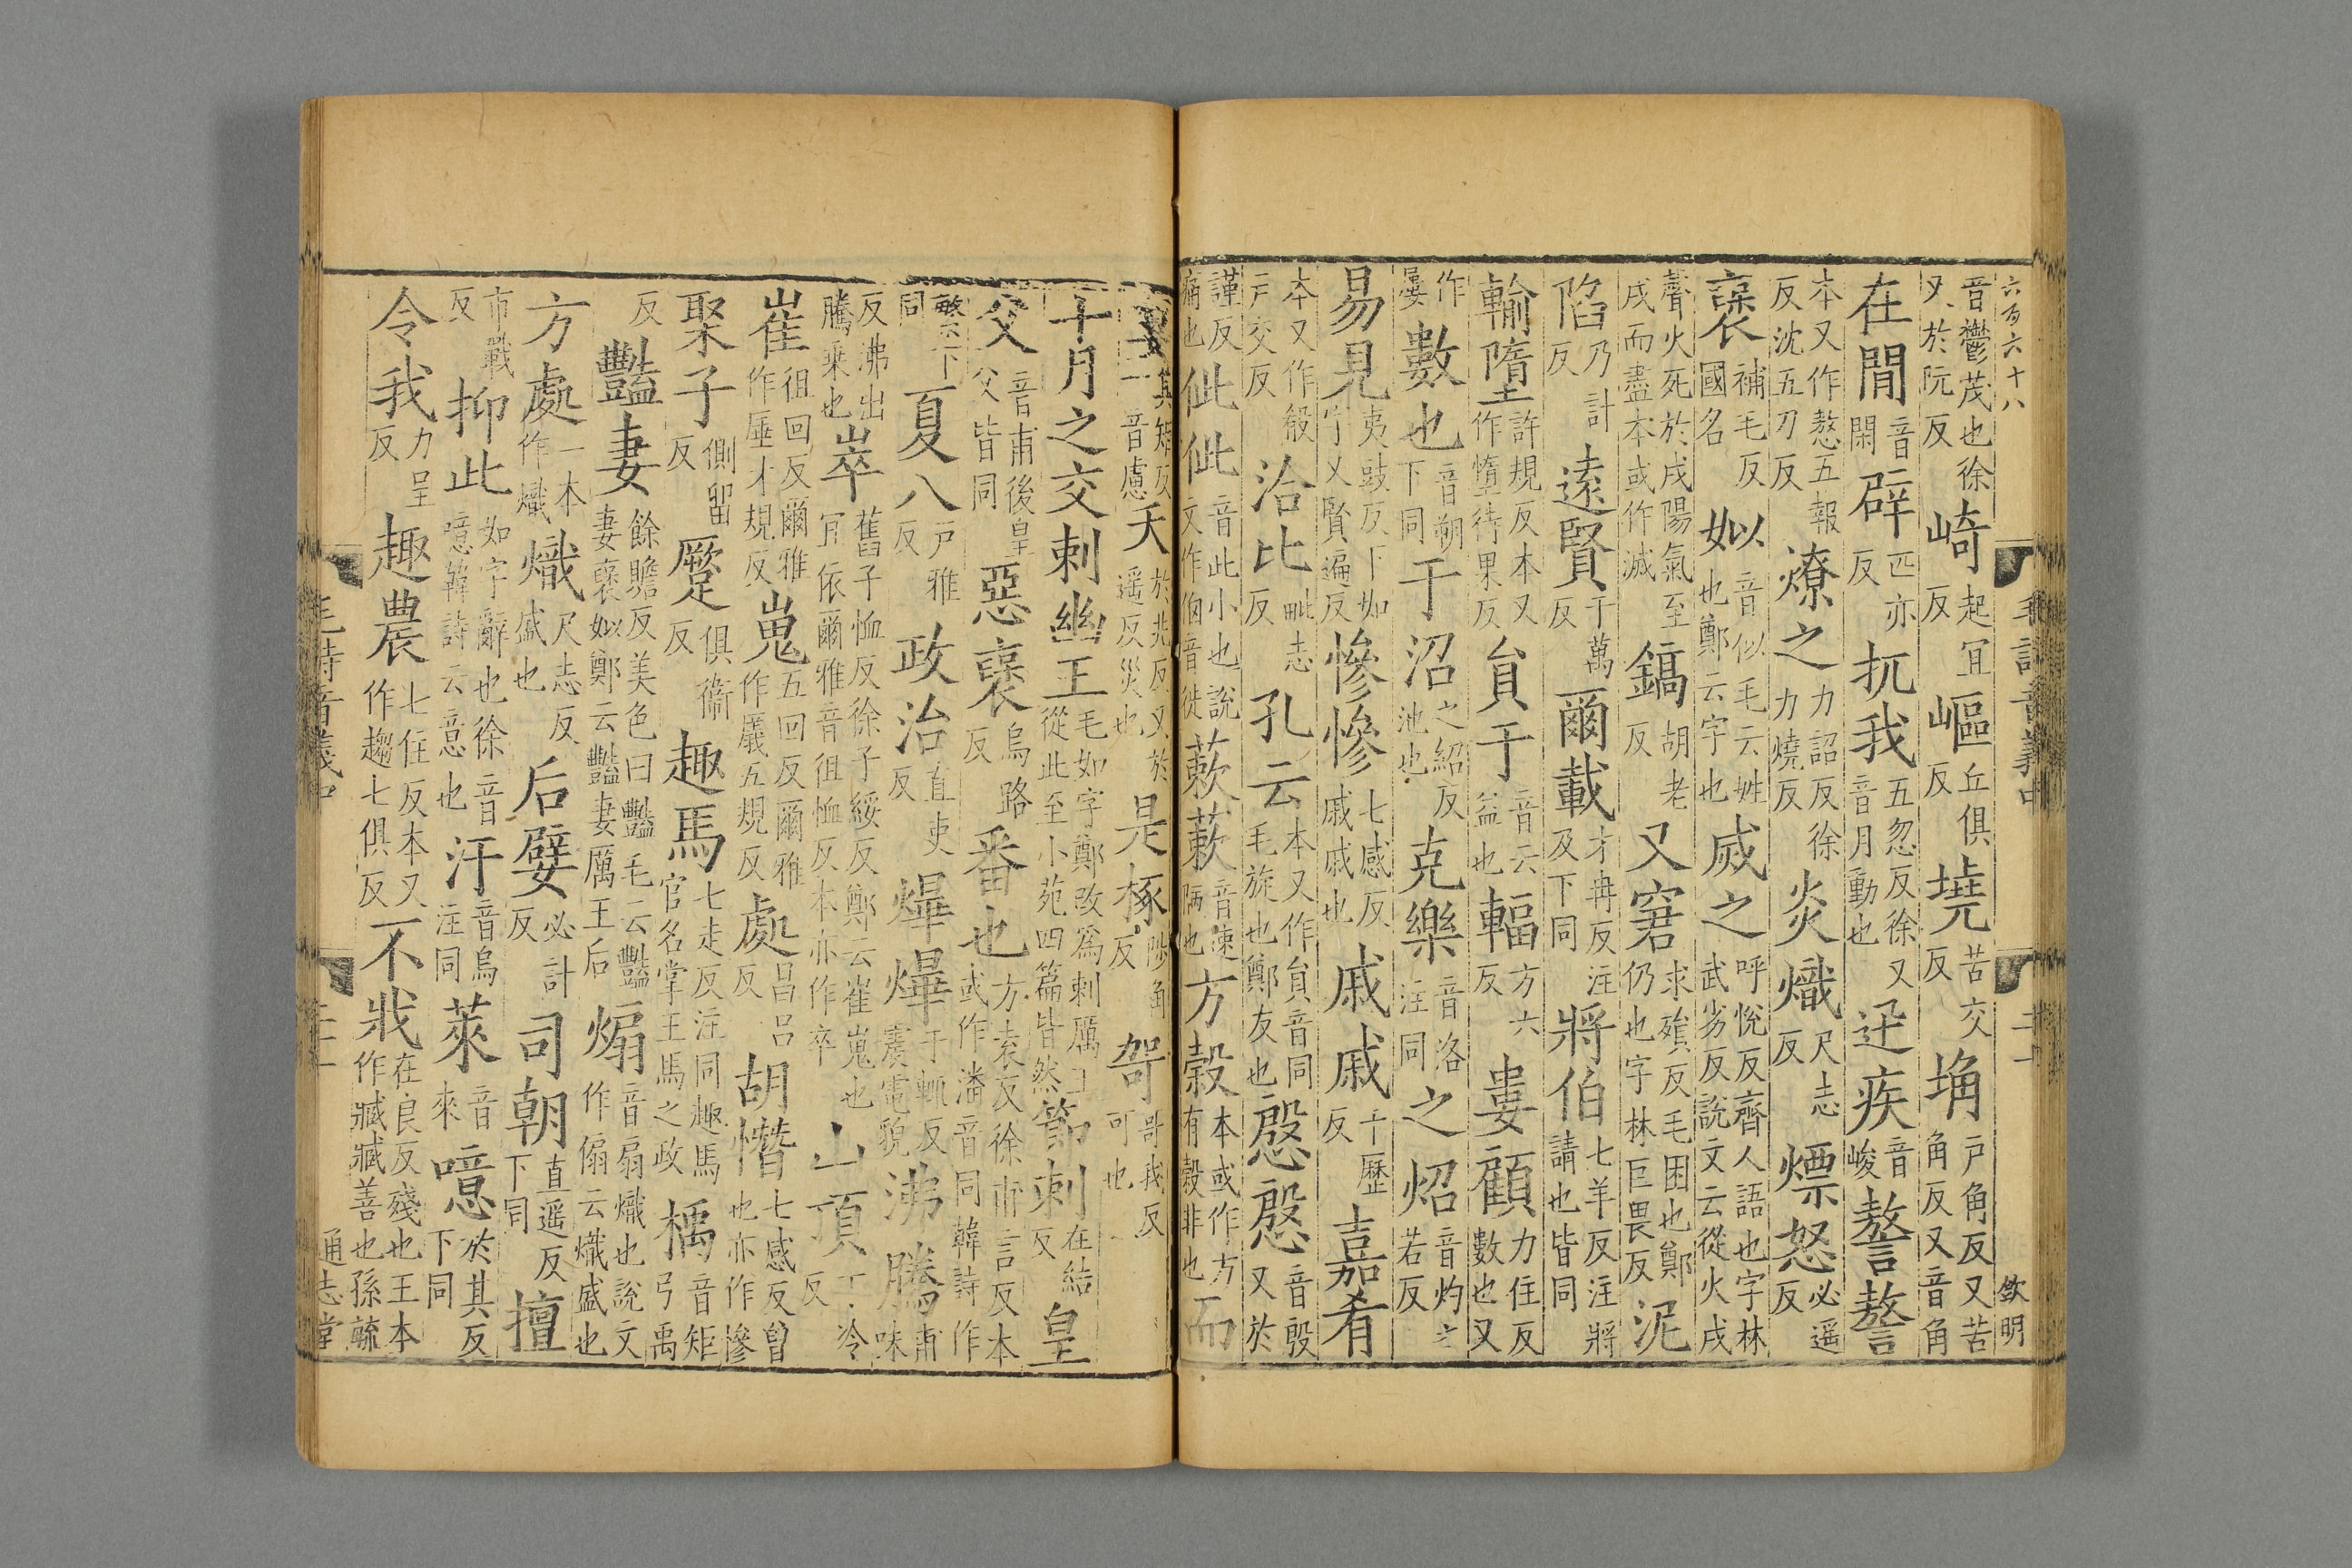 六百六十八
毛詩音義中
二十一
欽明
音鬱茂也徐又於阮反崎起宜反嶇丘俱反墝苦交反埆戶角反又苦角反又音角
在閒音閑辟匹亦反扤我五忽反徐又音月動也迋疾音峻謷謷
本又作熬五報反沈五刀反燎之力詔反徐力燒反炎熾尺志反熛怒必遥反
褒補毛反國名姒音似毛云姓也鄭云字也烕之呼悅反齊人語也字林武劣反說文云從火戌
聲火死於戌陽氣至戌而盡本或作滅鎬胡老反又窘求殞反毛困也鄭仍也字林巨畏反泥
陷乃計反遠賢于萬反爾載才冉反注及下同將伯七羊反注將請也皆同
輸墮許規反本又作惰待果反員于音云益也輻方六反婁顧力住反數也又
作屢數也音朔下同于沼之紹反池也克樂音洛注同之炤音灼之若反
易見夷豉反下如字又賢遍反慘慘七感反戚戚也戚戚千歷反嘉肴
本又作殽戶交反洽比毗志反孔云本又作員音同毛旋也鄭友也慇慇音殷又於
謹反痛也佌佌音此小也說文作𠈯音徙蔌蔌音速陋也方穀本或作方有穀非也而
窶其矩反一音慮夭於兆反又於遥反災也是椓陟角反哿哥我反可也
十月之交刺幽王毛如字鄭改爲刺厲王從此至小苑四篇皆然節刺在結反皇
父音甫後皇父皆同惡褒烏路反番也方袁反徐甫言反本或作潘音同韓詩作
繁下同夏八戶雅反政治直吏反爗爗于輒反震電貌沸騰甫味
反沸出騰乘也崒舊子恤反徐子綏反鄭云崔嵬也宜依爾雅音徂恤反本亦作卒山頂丁冷反
崔徂回反爾雅作厜才規反嵬五回反爾雅作㕒五規反處昌呂反胡憯七感反曾也亦作慘
聚子側留反蹷俱衞反趣馬七走反注同趣馬官名掌王馬之政楀音矩弓禹
反豔妻餘贍反美色曰豔毛云豔妻褒姒鄭云豔妻厲王后煽音扇熾也說文作傓云熾盛也
方處一本作熾熾尺志反盛也后嬖必計反司朝直遥反下同擅
市戰反抑此如字辭也徐音噫韓詩云意也汙音烏注同萊音來噫於其反下同
令我力呈反趣農七住反本又作趨七俱反不戕在良反殘也王本作臧臧善也孫毓
毛詩音義中
通志堂